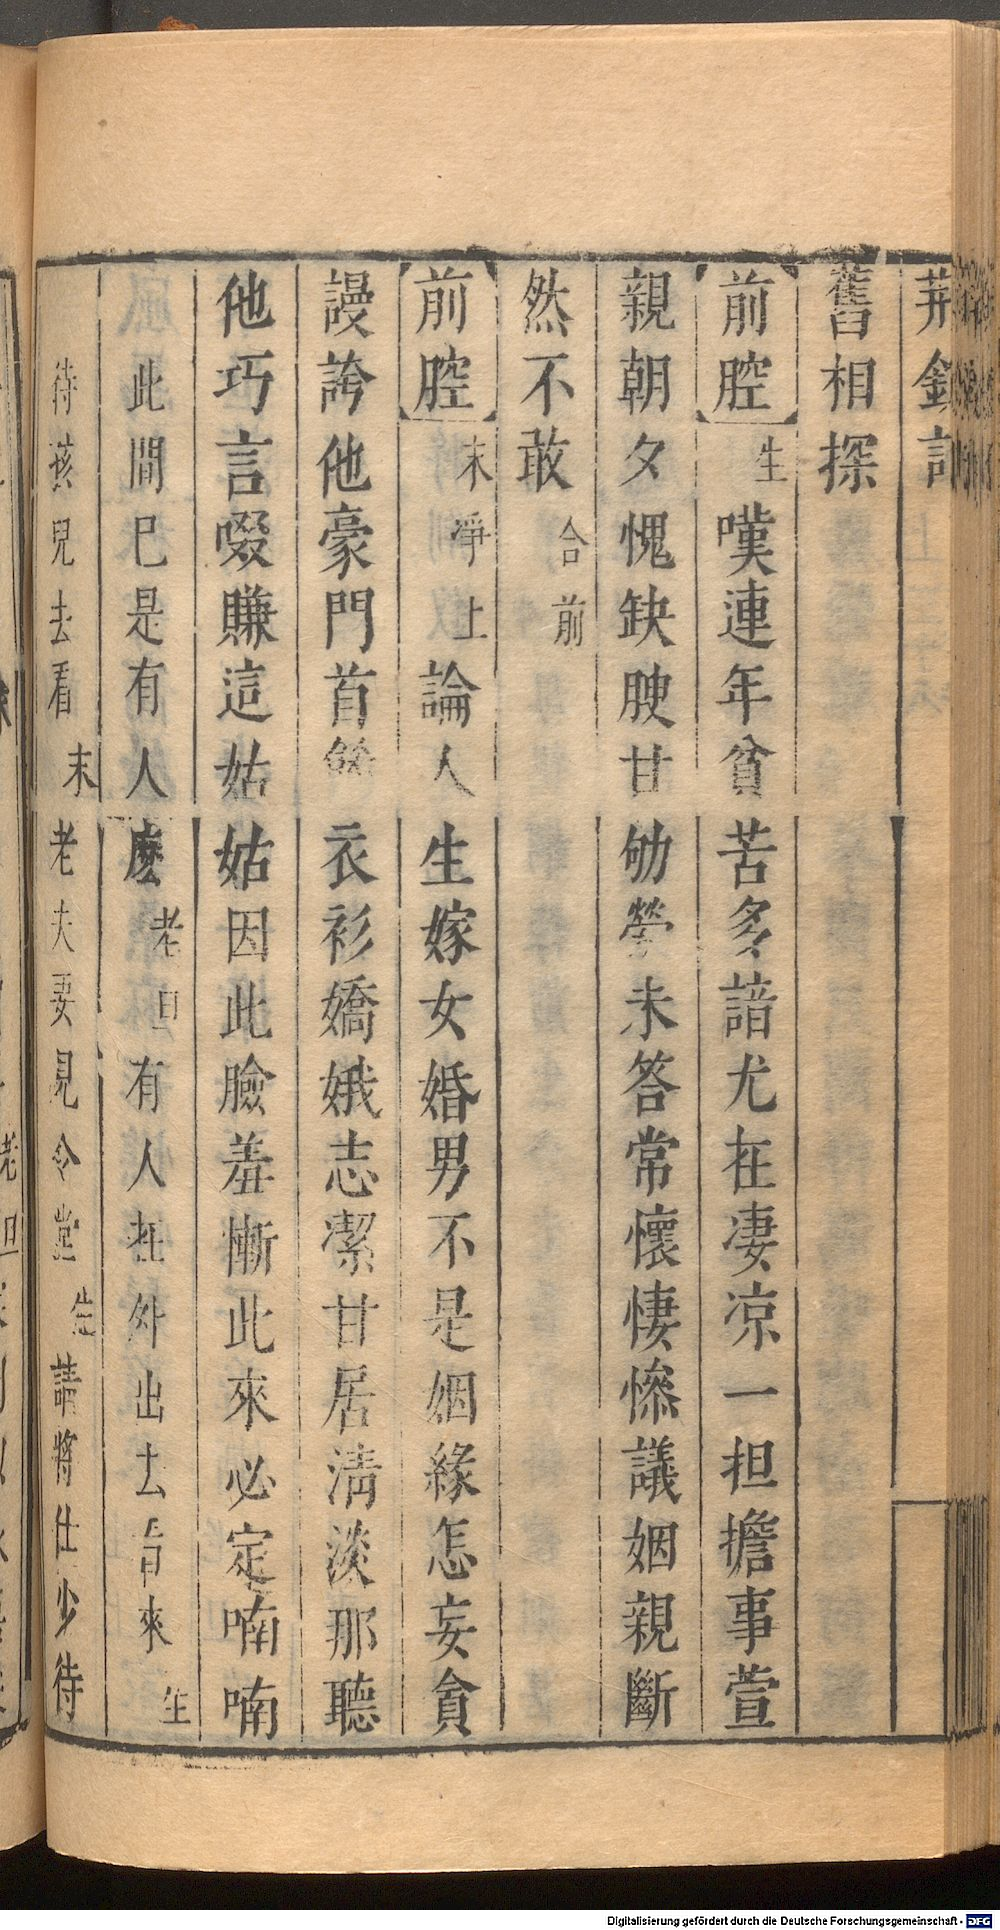 荆釵記
舊相探
前腔 生 嘆連年貧苦多諳尤在凄凉一担擔事萱
親朝夕愧缺腴甘劬勞未答常懷悽慘議姻親斷
然不敢 合前
前腔 末 淨上 論人生嫁女婚男不是姻緣怎妄貪
謾誇他豪門首餙衣衫嬌娥志潔甘居清淡那聽
他巧言啜賺這姑姑因此臉羞慚此來必定喃喃
此間已是有人麽 老旦 有人在外出去看來 生
待孩兒去看 末 老夫要見令堂 生 請將仕少待
Digitalisierung gefördert durch die Deutsche Forschungsgemeinschaft - DFG